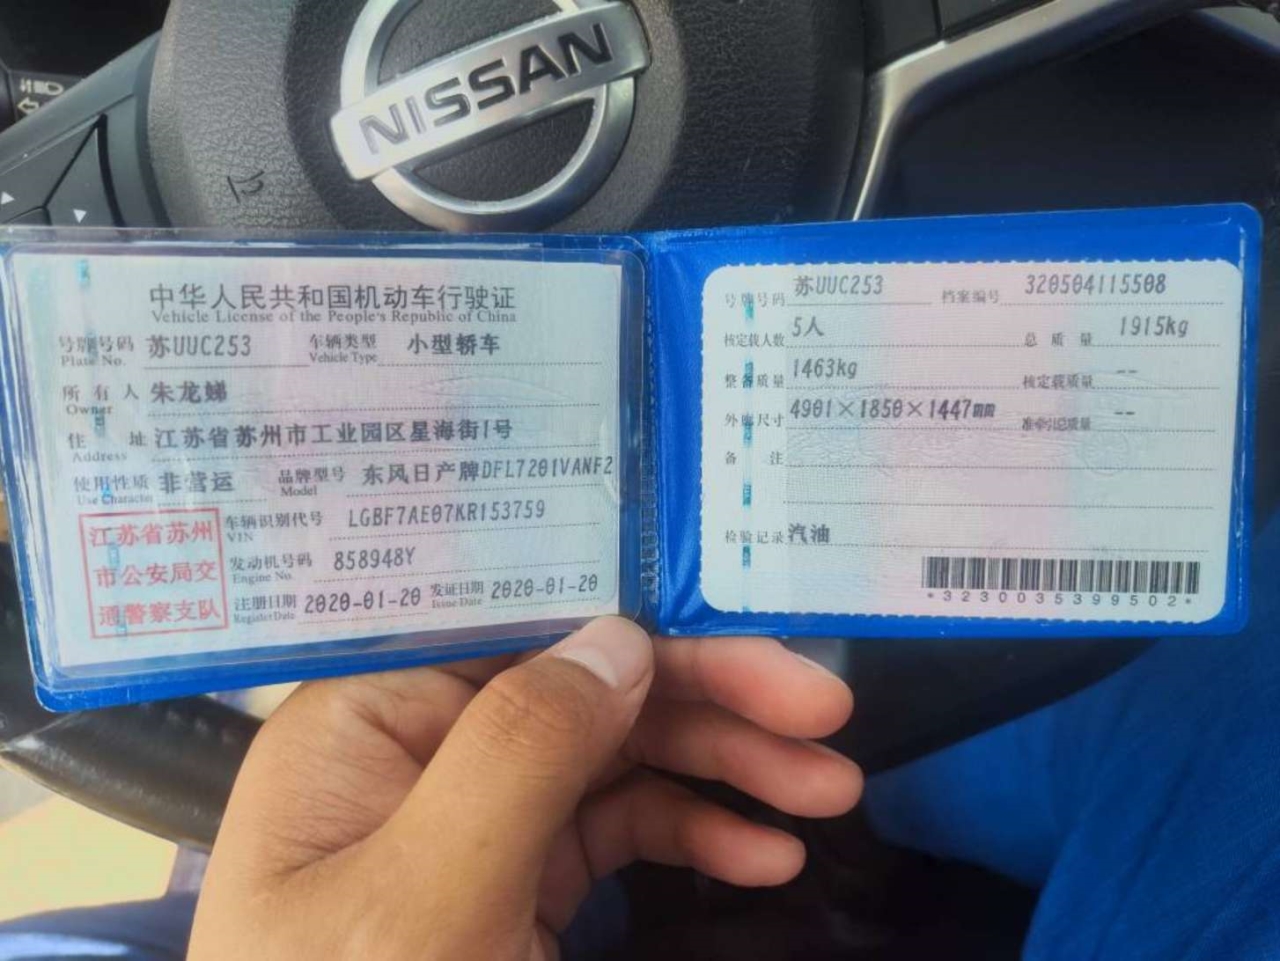 NISSAN
中华人民共和国机动车行驶证
Vehicle License of the People's Republic of China
号牌号码 苏UUC253 车辆类型 小型轿车
Plate No. Vehicle Type
所有人 朱龙娣
Owner
住址 江苏省苏州市工业园区星海街1号
Address
使用性质 非营运 品牌型号 东风日产牌DFL7201VANF2
Use Character Model
江苏省苏州
市公安局交
通警察支队
车辆识别代号 LGBF7AE07KR153759
VIN
发动机号码 858948Y
Engine No.
注册日期 2020-01-20 发证日期 2020-01-20
Register Date Issue Date
号牌号码 苏UUC253 档案编号 320504115508
核定载人数 5人 总质量 1915kg
整备质量 1463kg 核定载质量 --
外廓尺寸 4901×1850×1447mm 准牵引总质量 --
备注
检验记录 汽油
*3230035399502*